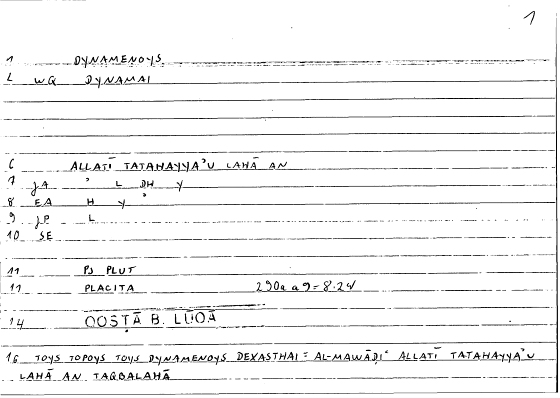 1
1 DYNAMENOYS
2 WQ DYNAMAI
6 ALLATĪ TATAHAYYAʾU LAHĀ AN
7 JA ʾ L DH Y
8 EA H Y ʾ
9 JP L
10 SE
11 PS PLUT
11 PLACITA 290a a9 = 8.24
14 QOSṬĀ B. LŪQĀ
16 TOYS TOPOYS TOYS DYNAMENOYS DEXASTHAI = AL-MAWĀḌIʿ ALLATĪ TATAHAYYAʾU
LAHĀ AN TAQBALAHĀ